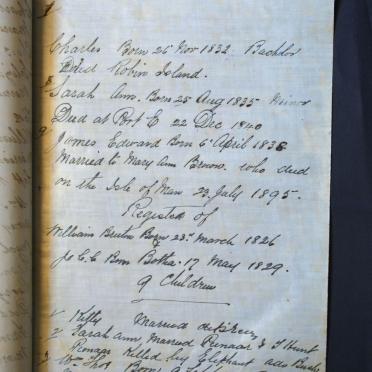 Charles Born 26 Nov 1832 Bachlor
Died Robin Island.
Sarah Ann. Born 25 Aug 1835
Died at Port E 22 Dec 1840
9 James Edward Born 6 April 1836
Married to Mary Ann Brown. who died
on the Isle of Man 23 July 1895.
Register of
William Bruton Born 23rd March 1826
J. C. C Born Botha. 17 May 1829.
9 Children
1 Kitty Married
2 Sarah Ann, Married Pienaar & J Hunt
Pienaar Killed by Elephant
3 Wm Thos Born